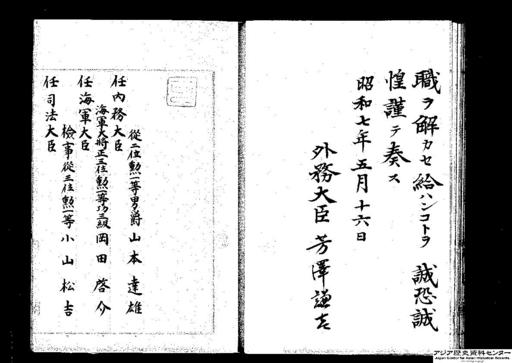 職ヲ解カセ給ハンコトヲ 誠恐誠
惶謹テ奏ス
昭和七年五月十六日
外務大臣 芳澤謙吉
任内務大臣
從二位勲一等男爵 山本達雄
任海軍大臣
海軍大将正三位勲一等功三級 岡田啓介
任司法大臣
檢事從三位勲一等 小山松吉
アジア歴史資料センター
Japan Center for Asian Historical Records